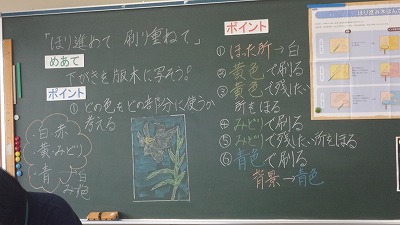 「ほり進めて 刷り重ねて」
めあて
下がきを版木に写そう!
ポイント
① どの色をどの部分に使うか
考える
白 赤
黄 みどり
青
ポイント
① ほった所→白
② 黄色で刷る
③ 黄色で残したい
所をほる
④ みどりで刷る
⑤ みどりで残したい所をほる
⑥ 青色で刷る
背景→青色